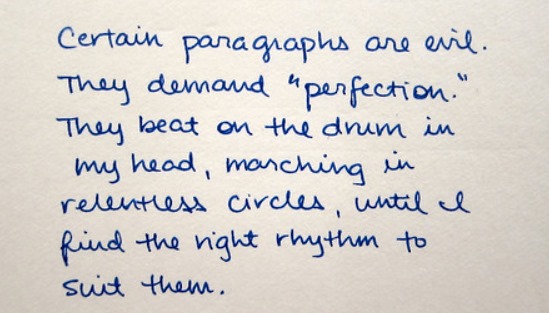 Certain paragraphs are evil.
They demand "perfection."
They beat on the drum in
my head, marching in
relentless circles, until I
find the right rhythm to
suit them.